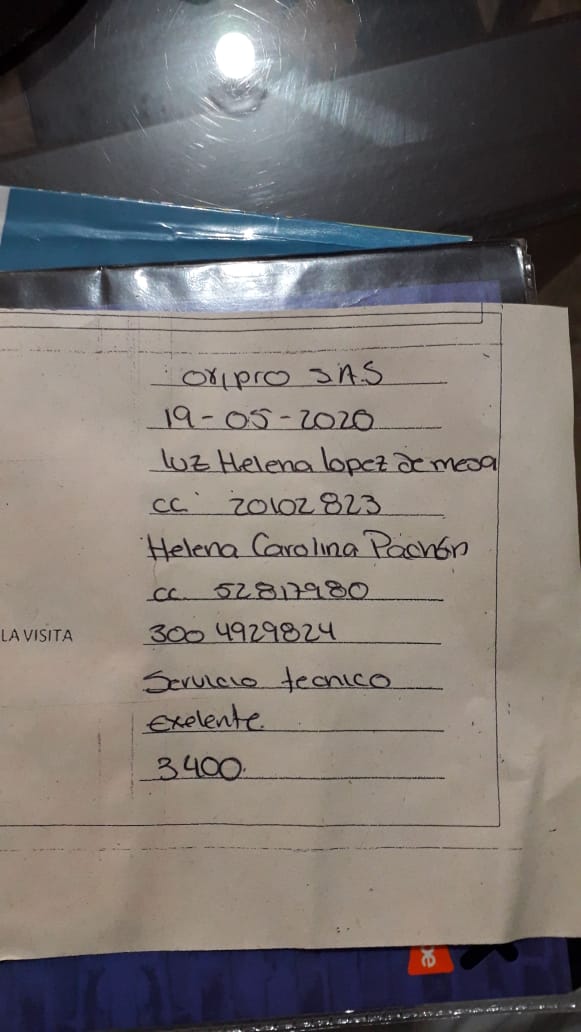 oxipro SAS
19-05-2020
luz Helena lopez de mesa
cc 20102823
Helena Carolina Pachón
cc. 52817980
LA VISITA 300 4929824
Servicio tecnico
Exelente.
3400.